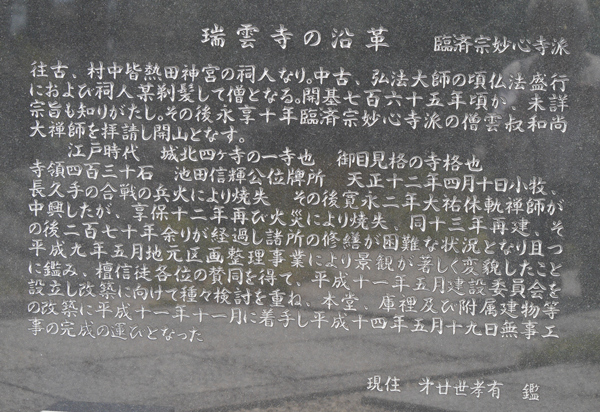 瑞雲寺の沿革 臨済宗妙心寺派
往古、村中皆熱田神宮の祠人なり。中古、弘法大師の頃仏法盛行
におよび祠人某剃髪して僧となる。開基七百六十五年頃か、未詳
宗旨も知りがたし。その後永享十年臨済宗妙心寺派の僧雲叔和尚
大禅師を拝請し開山となす。
江戸時代 城北四ヶ寺の一寺也 御目見格の寺格也
寺領四百三十石 池田信輝公位牌所 天正十二年四月十日小牧、
長久手の合戦の兵火により焼失 その後寛永二年大祐休軌禅師が
中興したが、享保十二年再び火災により焼失、同十三年再建、そ
の後二百七十年余りが経過し諸所の修繕が困難な状況となり且つ
平成九年五月地元区画整理事業により景観が著しく変貌したこと
に鑑み、檀信徒各位の賛同を得て、平成十一年五月建設委員会を
設立し改築に向けて種々検討を重ね、本堂、庫裡及び附属建物等
の改築に平成十一年十一月に着手し平成十四年五月十九日無事工
事の完成の運びとなった
現住 才廿世孝有 鑑